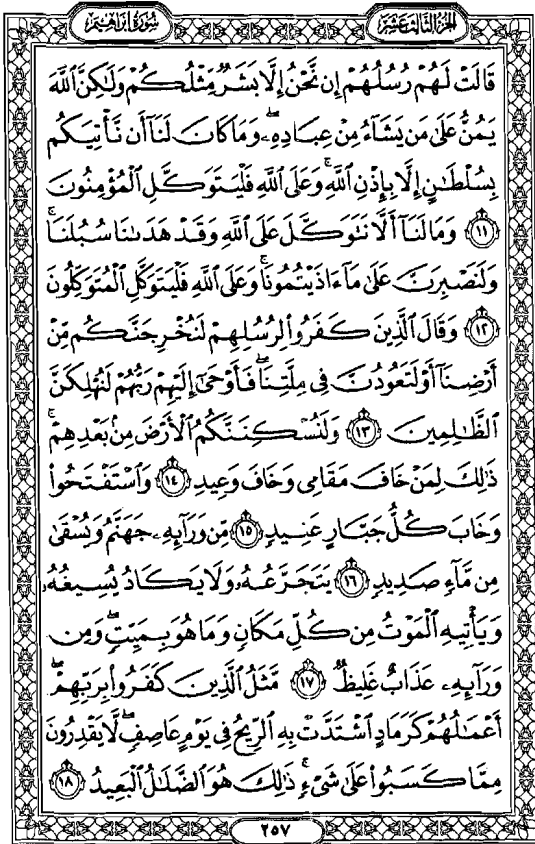 سُورَةُ إِبْرَاهِيم
الجُزْءُ الثَّالِثَ عَشَر
قَالَتْ لَهُمْ رُسُلُهُمْ إِن نَّحْنُ إِلَّا بَشَرٌ مِّثْلُكُمْ وَلَٰكِنَّ ٱللَّهَ
يَمُنُّ عَلَىٰ مَن يَشَآءُ مِنْ عِبَادِهِۦۖ وَمَا كَانَ لَنَآ أَن نَّأْتِيَكُم
بِسُلْطَٰنٍ إِلَّا بِإِذْنِ ٱللَّهِۚ وَعَلَى ٱللَّهِ فَلْيَتَوَكَّلِ ٱلْمُؤْمِنُونَ
١١ وَمَا لَنَآ أَلَّا نَتَوَكَّلَ عَلَى ٱللَّهِ وَقَدْ هَدَىٰنَا سُبُلَنَاۚ
وَلَنَصْبِرَنَّ عَلَىٰ مَآ ءَاذَيْتُمُونَاۚ وَعَلَى ٱللَّهِ فَلْيَتَوَكَّلِ ٱلْمُتَوَكِّلُونَ
١٢ وَقَالَ ٱلَّذِينَ كَفَرُوا۟ لِرُسُلِهِمْ لَنُخْرِجَنَّكُم مِّنْ
أَرْضِنَآ أَوْ لَتَعُودُنَّ فِى مِلَّتِنَاۖ فَأَوْحَىٰٓ إِلَيْهِمْ رَبُّهُمْ لَنُهْلِكَنَّ
ٱلظَّٰلِمِينَ ١٣ وَلَنُسْكِنَنَّكُمُ ٱلْأَرْضَ مِنۢ بَعْدِهِمْۚ
ذَٰلِكَ لِمَنْ خَافَ مَقَامِى وَخَافَ وَعِيدِ ١٤ وَٱسْتَفْتَحُوا۟
وَخَابَ كُلُّ جَبَّارٍ عَنِيدٍ ١٥ مِّن وَرَآئِهِۦ جَهَنَّمُ وَيُسْقَىٰ
مِن مَّآءٍ صَدِيدٍ ١٦ يَتَجَرَّعُهُۥ وَلَا يَكَادُ يُسِيغُهُۥ
وَيَأْتِيهِ ٱلْمَوْتُ مِن كُلِّ مَكَانٍ وَمَا هُوَ بِمَيِّتٍۖ وَمِن
وَرَآئِهِۦ عَذَابٌ غَلِيظٌ ١٧ مَّثَلُ ٱلَّذِينَ كَفَرُوا۟ بِرَبِّهِمْۖ
أَعْمَٰلُهُمْ كَرَمَادٍ ٱشْتَدَّتْ بِهِ ٱلرِّيحُ فِى يَوْمٍ عَاصِفٍۖ لَّا يَقْدِرُونَ
مِمَّا كَسَبُوا۟ عَلَىٰ شَىْءٍۚ ذَٰلِكَ هُوَ ٱلضَّلَٰلُ ٱلْبَعِيدُ ١٨
٢٥٧